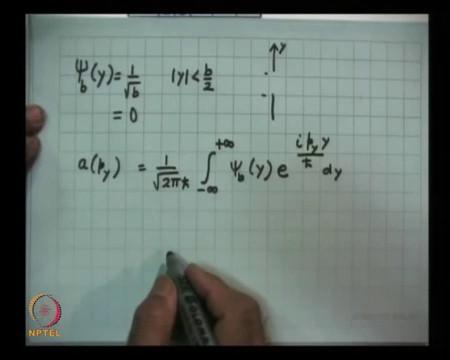 ψ_b(y) = 1/√b |y| < b/2 y
= 0
a(p_y) = 1/√(2πħ) ∫_{-∞}^{+∞} ψ_b(y) e^{i p_y y/ħ} dy
NPTEL